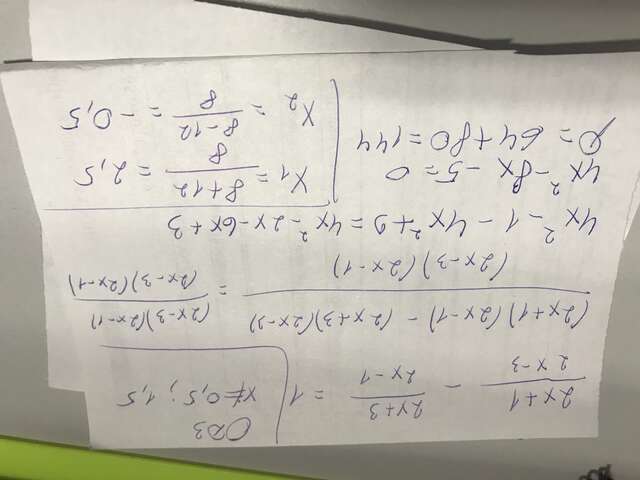 (2x+1)/(2x-3) - (2x+3)/(2x-1) = 1
ОДЗ
x≠0,5; 1,5
((2x+1)(2x-1) - (2x+3)(2x-3))/((2x-3)(2x-1)) = ((2x-3)(2x-1))/((2x-3)(2x-1))
4x² - 1 - 4x² + 9 = 4x² - 2x - 6x + 3
4x² - 8x - 5 = 0
D = 64 + 80 = 144
x₁ = (8+12)/8 = 2,5
x₂ = (8-12)/8 = -0,5